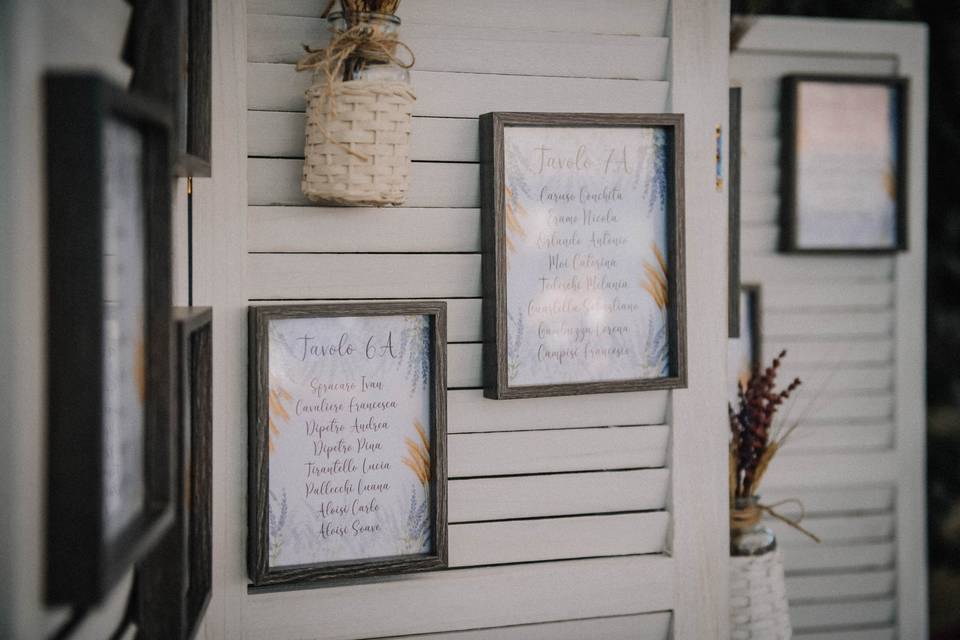 Tavolo 6A
Sfracaro Ivan
Cavaliere Francesca
Dipetro Andrea
Dipetro Pina
Tirantello Lucia
Pallecchi Luana
Aloisi Carlo
Aloisi Soave
Tavolo 7A
Caruso Conchita
Eramo Nicola
Orlando Antonio
Moi Caterina
Tedeschi Melania
Guardella Sebastiano
Gambuzza Lorena
Campisi Francesco